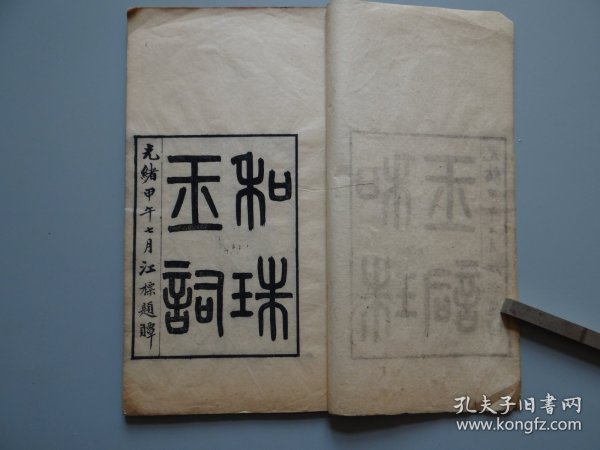 和珠
玉詞
光緒甲午七月江標題

孔夫子旧书网
www.kongfz.com